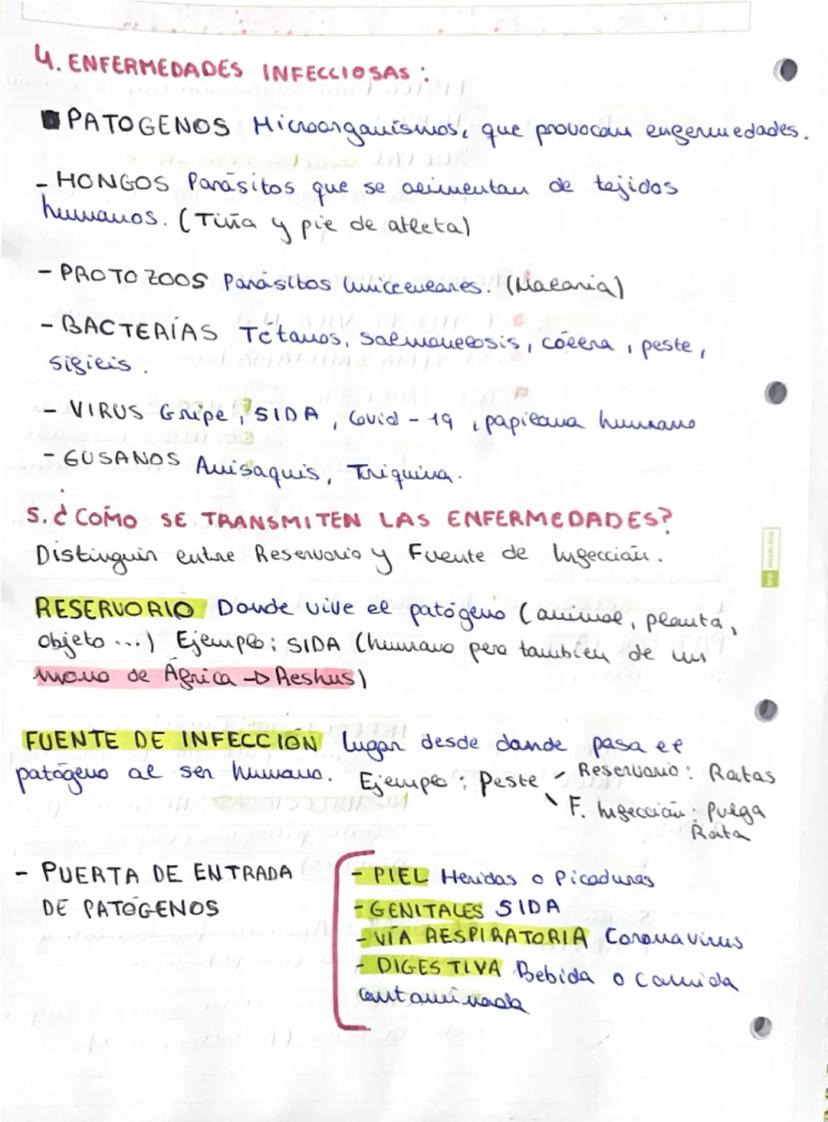 4. ENFERMEDADES INFECCIOSAS:
PATOGENOS Microorganismos, que provocan enfermedades.
- HONGOS Parásitos que se alimentan de tejidos
humanos. (Tiña y pie de atleta)
- PROTOZOOS Parásitos unicelulares. (Malaria)
- BACTERÍAS Tétanos, salmonelosis, cólera, peste,
sífilis.
- VIRUS Gripe, SIDA, Covid-19, papiloma humano
- GUSANOS Anisaquis, Triquina.
5. ¿COMO SE TRANSMITEN LAS ENFERMEDADES?
Distinguir entre Reservorio y Fuente de Infección.
RESERVORIO Donde vive el patógeno (animal, planta,
objeto...) Ejemplo: SIDA (humano pero también de un
mono de África → Reshus)
FUENTE DE INFECCIÓN lugar desde donde pasa el
patógeno al ser humano. Ejemplo: Peste - Reservorio: Ratas
\ F. Infección: Pulga
Rata
- PUERTA DE ENTRADA
DE PATÓGENOS
- PIEL Heridas o Picaduras
- GENITALES SIDA
- VÍA RESPIRATORIA Coronavirus
- DIGESTIVA Bebida o Comida
contaminada